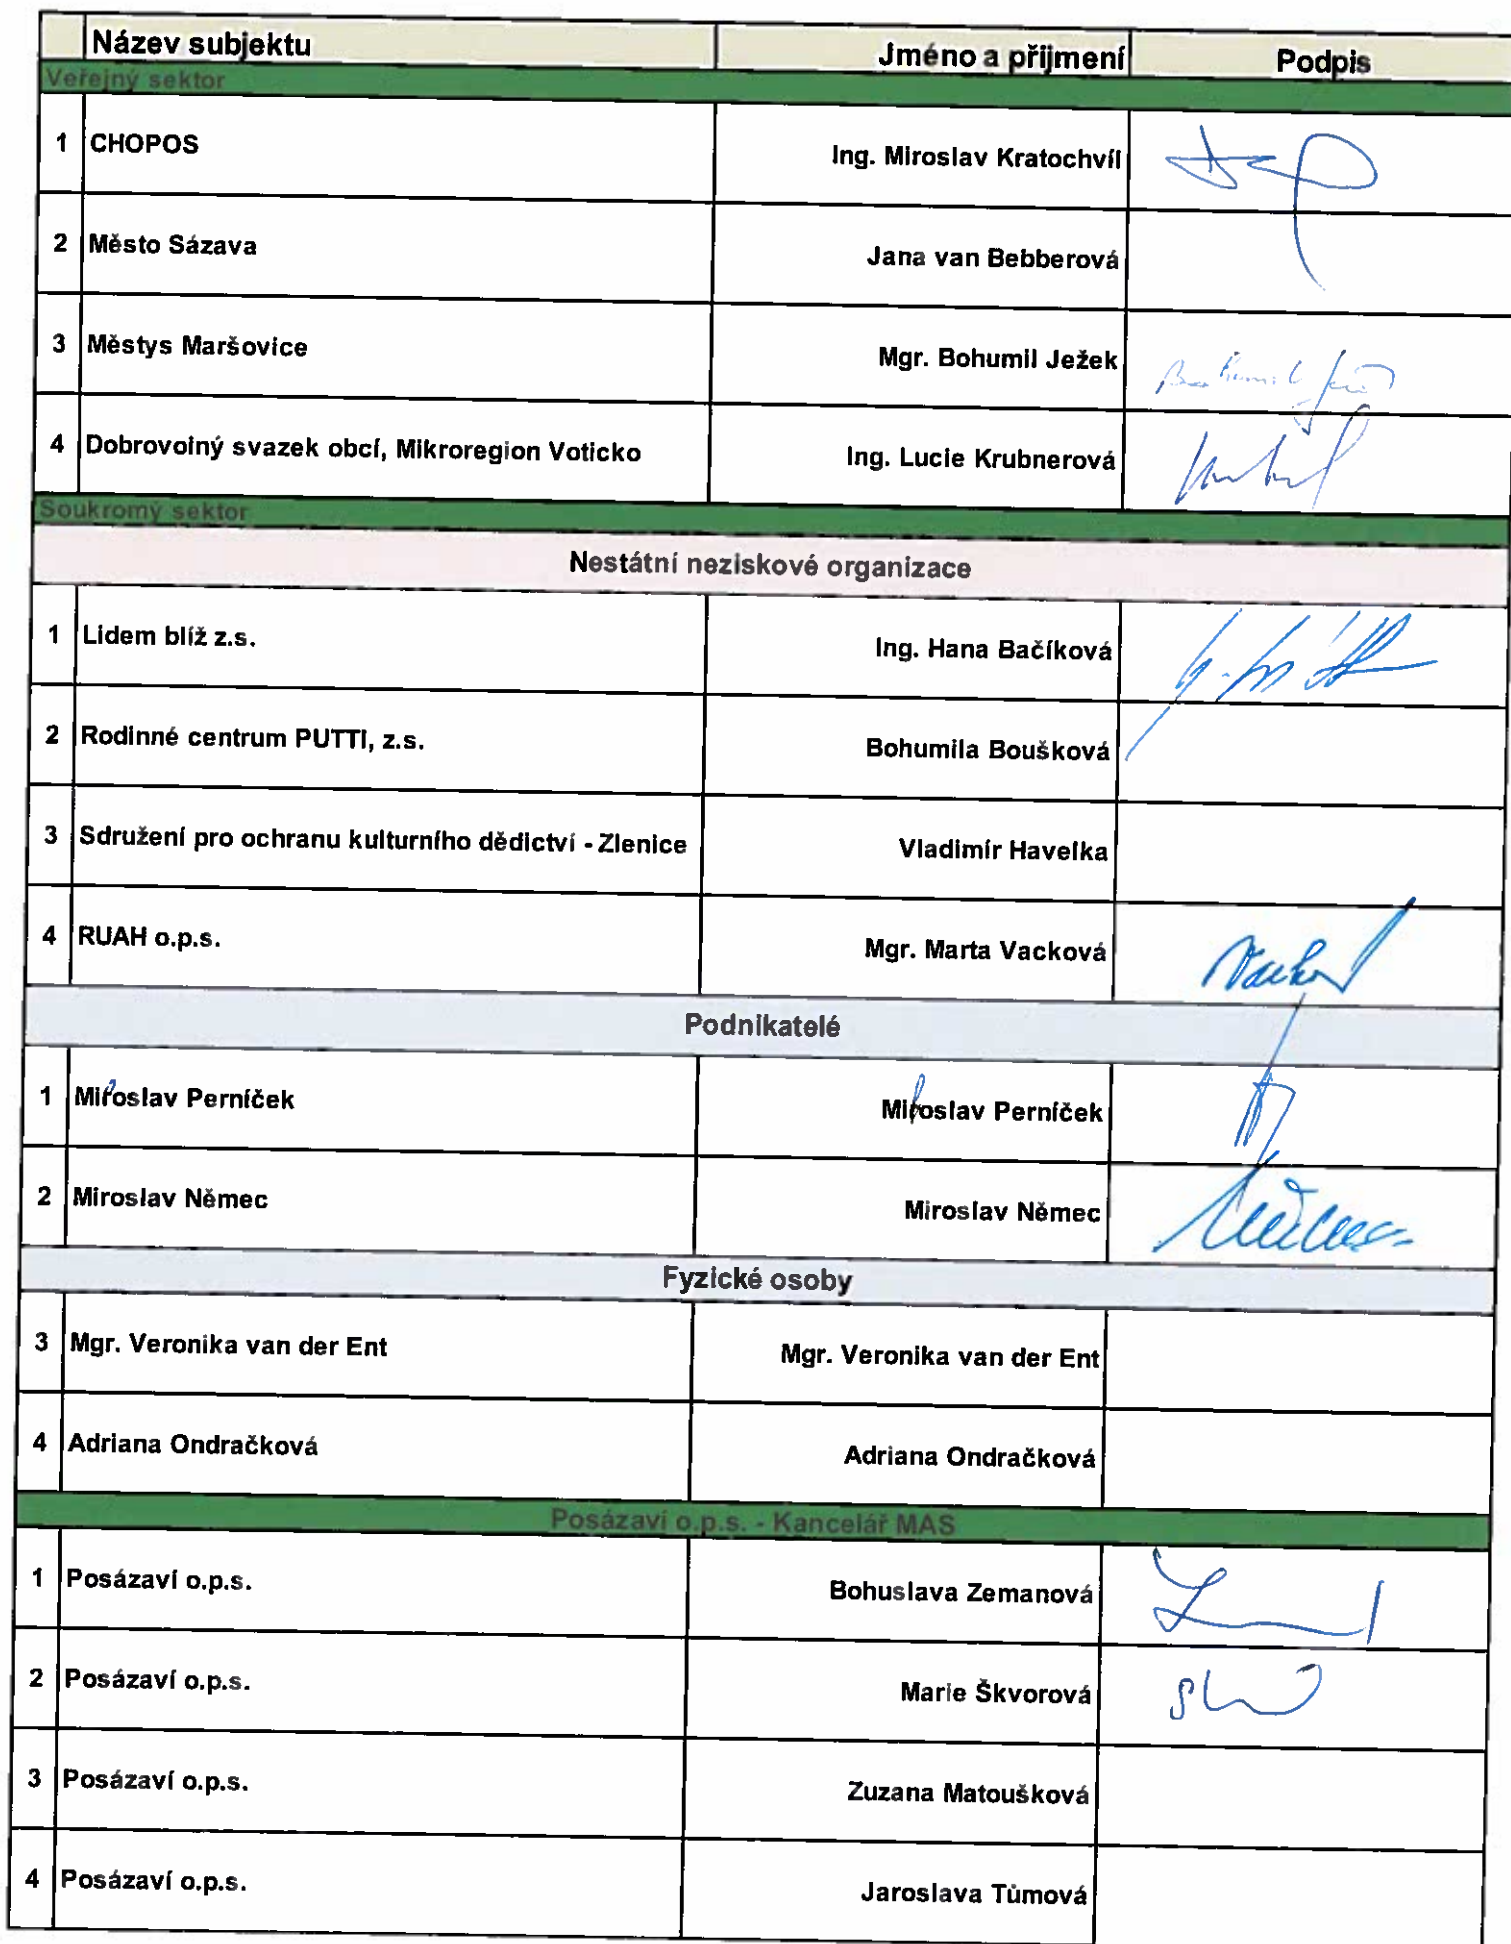 Název subjektu Jméno a přijmení Podpis
Veřejný sektor
1 CHOPOS Ing. Miroslav Kratochvíl
2 Město Sázava Jana van Bebberová
3 Městys Maršovice Mgr. Bohumil Ježek
4 Dobrovolný svazek obcí, Mikroregion Voticko Ing. Lucie Krubnerová
Soukromý sektor
Nestátní neziskové organizace
1 Lidem blíž z.s. Ing. Hana Bačíková
2 Rodinné centrum PUTTI, z.s. Bohumila Boušková
3 Sdružení pro ochranu kulturního dědictví - Zlenice Vladimír Havelka
4 RUAH o.p.s. Mgr. Marta Vacková
Podnikatelé
1 Miroslav Perníček Miroslav Perníček
2 Miroslav Němec Miroslav Němec
Fyzické osoby
3 Mgr. Veronika van der Ent Mgr. Veronika van der Ent
4 Adriana Ondračková Adriana Ondračková
Posázaví o.p.s. - Kancelář MAS
1 Posázaví o.p.s. Bohuslava Zemanová
2 Posázaví o.p.s. Marie Škvorová
3 Posázaví o.p.s. Zuzana Matoušková
4 Posázaví o.p.s. Jaroslava Tůmová